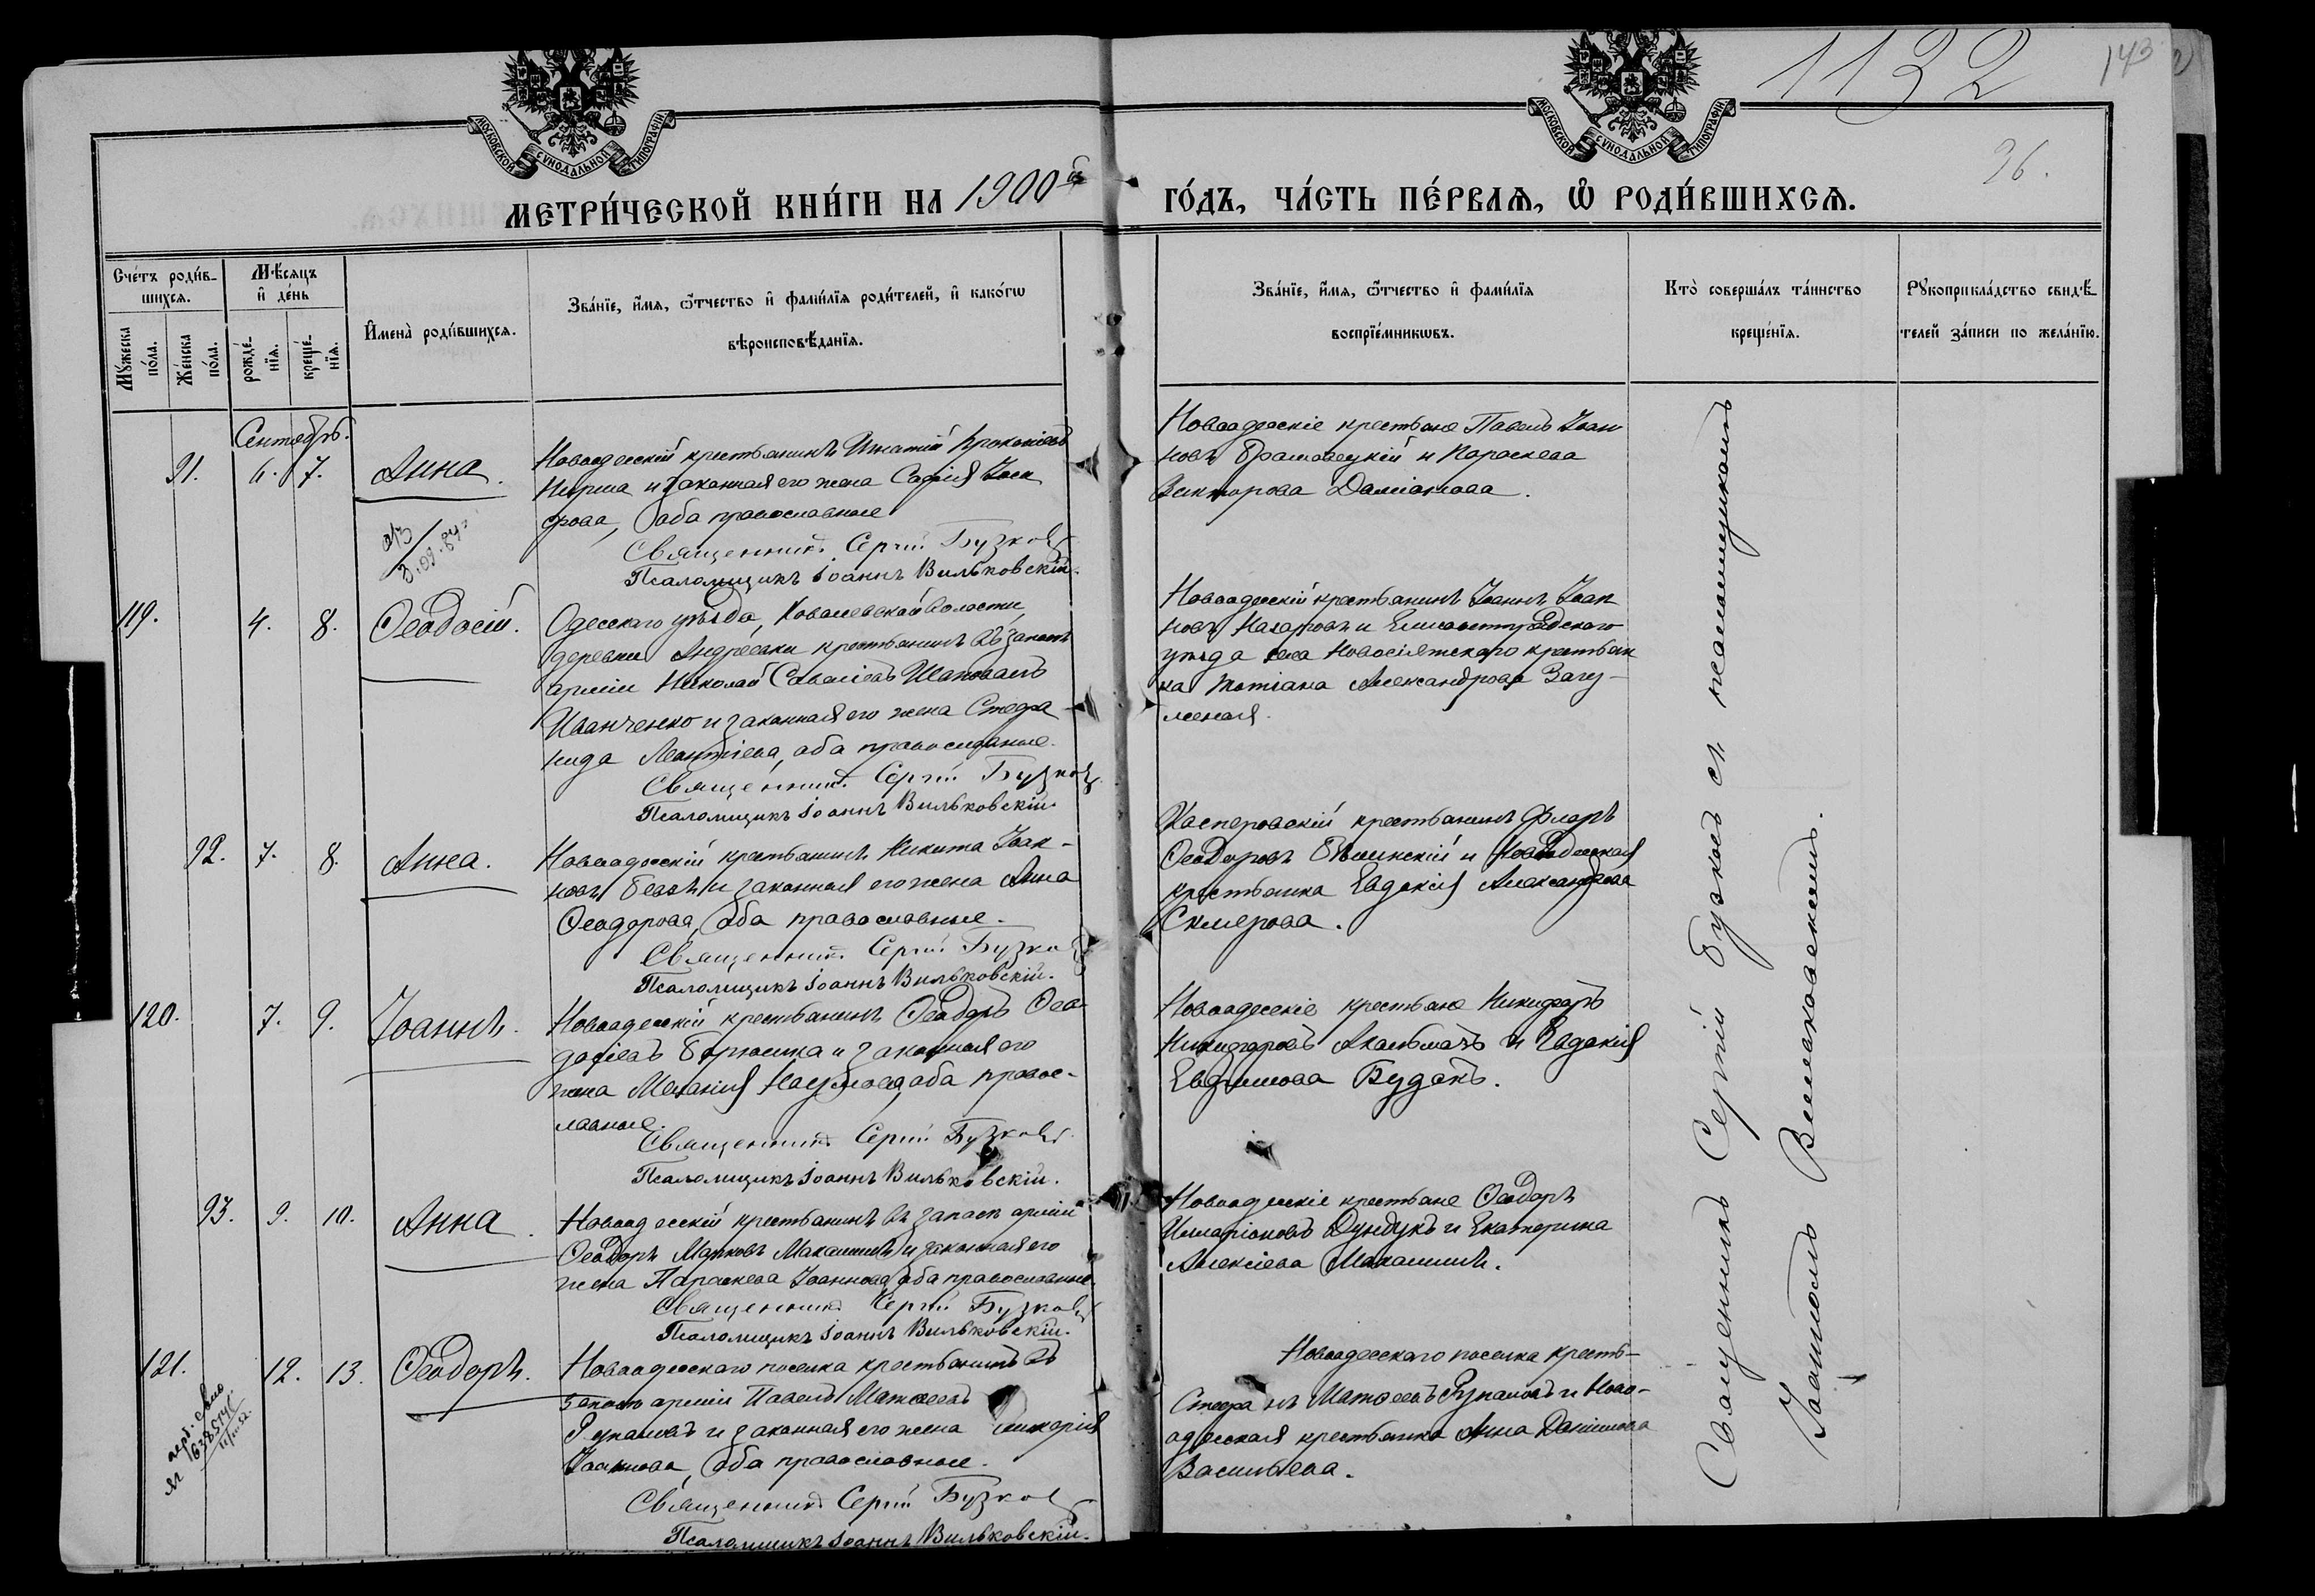 1132
143
МОСКОВСКОЙ СѴНОДАЛЬНОЙ ТИПОГРАФІИ
МОСКОВСКОЙ СѴНОДАЛЬНОЙ ТИПОГРАФІИ
96.
МЕТРИ́ЧЕСКОЙ КНИ́ГИ НА 1900й
ГО́ДЪ, ЧА́СТЬ ПЕ́РВАЯ, Ѡ РОДИ́ВШИХСЯ.
Сче́тъ роди́в-
шихся.
Мѣ́сяцъ
и де́нь
Мꙋ́жеска по́ла.
Же́нска по́ла.
рожде́-нїя.
креще́-нїя.
Имена̀ роди́вшихся.
Зва́нїе, и́мя, ѻ́тчество и фами́лїя роди́телей, и како́гѡ
вѣроисповѣ́данїя.
Зва́нїе, и́мя, ѻ́тчество и фами́лїя
воспрїе́мникѡвъ.
Кто̀ соверша́лъ та́инство
креще́нїя.
Рꙋкоприкла́дство свидѣ́-
телей за́писи по жела́нїю.
Сентябрь.
91. 6. 7. Анна.
Новоодесскій крестьянинъ Игнатій Прокопіевъ
и законная его жена Софія
оба православные
Священникъ Сергій Бузковъ
Псаломщикъ Іоаннъ Вильковскій.
Новоодесскіе крестьяне Павелъ Іоан
новъ и Параскева
Викторова Даміанова.
119. 4. 8. Ѳеодосій.
Одесскаго уѣзда, Ковалевской волости,
деревни Андреевки крестьянинъ въ запасѣ
арміи Николай Савеліевъ Шаповалъ
Иванченко и законная его жена Стефа
нида Леонтіева, оба православные.
Священникъ Сергій Бузковъ
Псаломщикъ Іоаннъ Вильковскій.
Новоодесскій крестьянинъ Іоаннъ Іоан
новъ Назаровъ и Елисаветградскаго
уѣзда села крестьян
ка Татіана Александрова
92. 7. 8. Анна.
Новоодесскій крестьянинъ Никита Іоан-
новъ и законная его жена Анна
Ѳеодорова, оба православные.
Священникъ Сергій Бузковъ
Псаломщикъ Іоаннъ Вильковскій.
Касперовскій крестьянинъ Флоръ
Ѳеодоровъ и Новоодесская
крестьянка Евдокія Александрова
Склерова.
120. 7. 9. Іоаннъ.
Новоодесскій крестьянинъ Ѳеодоръ Ѳео-
досіевъ и законная его
жена Меланія Наумова, оба правос-
лавные.
Священникъ Сергій Бузковъ
Псаломщикъ Іоаннъ Вильковскій.
Новоодесскіе крестьяне Никифоръ
Никифоровъ и Евдокія
Евфимова Будакъ.
93. 9. 10. Анна.
Новоодесскій крестьянинъ въ запасѣ арміи
Ѳеодоръ Марковъ и законная его
жена Параскева Іоаннова, оба православные
Священникъ Сергій Бузковъ
Псаломщикъ Іоаннъ Вильковскій.
Новоодесскіе крестьяне Ѳеодоръ
Иларіоновъ Дундукъ и Екатерина
Алексіева
121. 12. 13. Ѳеодоръ.
Новоодесскаго поселка крестьянинъ въ
запасѣ арміи Павелъ Матѳеевъ
и законная его жена Гликерія
Іоаннова, оба православные.
Священникъ Сергій Бузковъ
Псаломщикъ Іоаннъ Вильковскій.
Новоодесскаго поселка кресть-
Стефанъ Матѳеевъ и Ново-
одесская крестьянка Анна Даніилова
Васильева.
Священникъ Сергій Бузковъ съ псаломщикомъ
Іоанномъ Вильковскимъ.